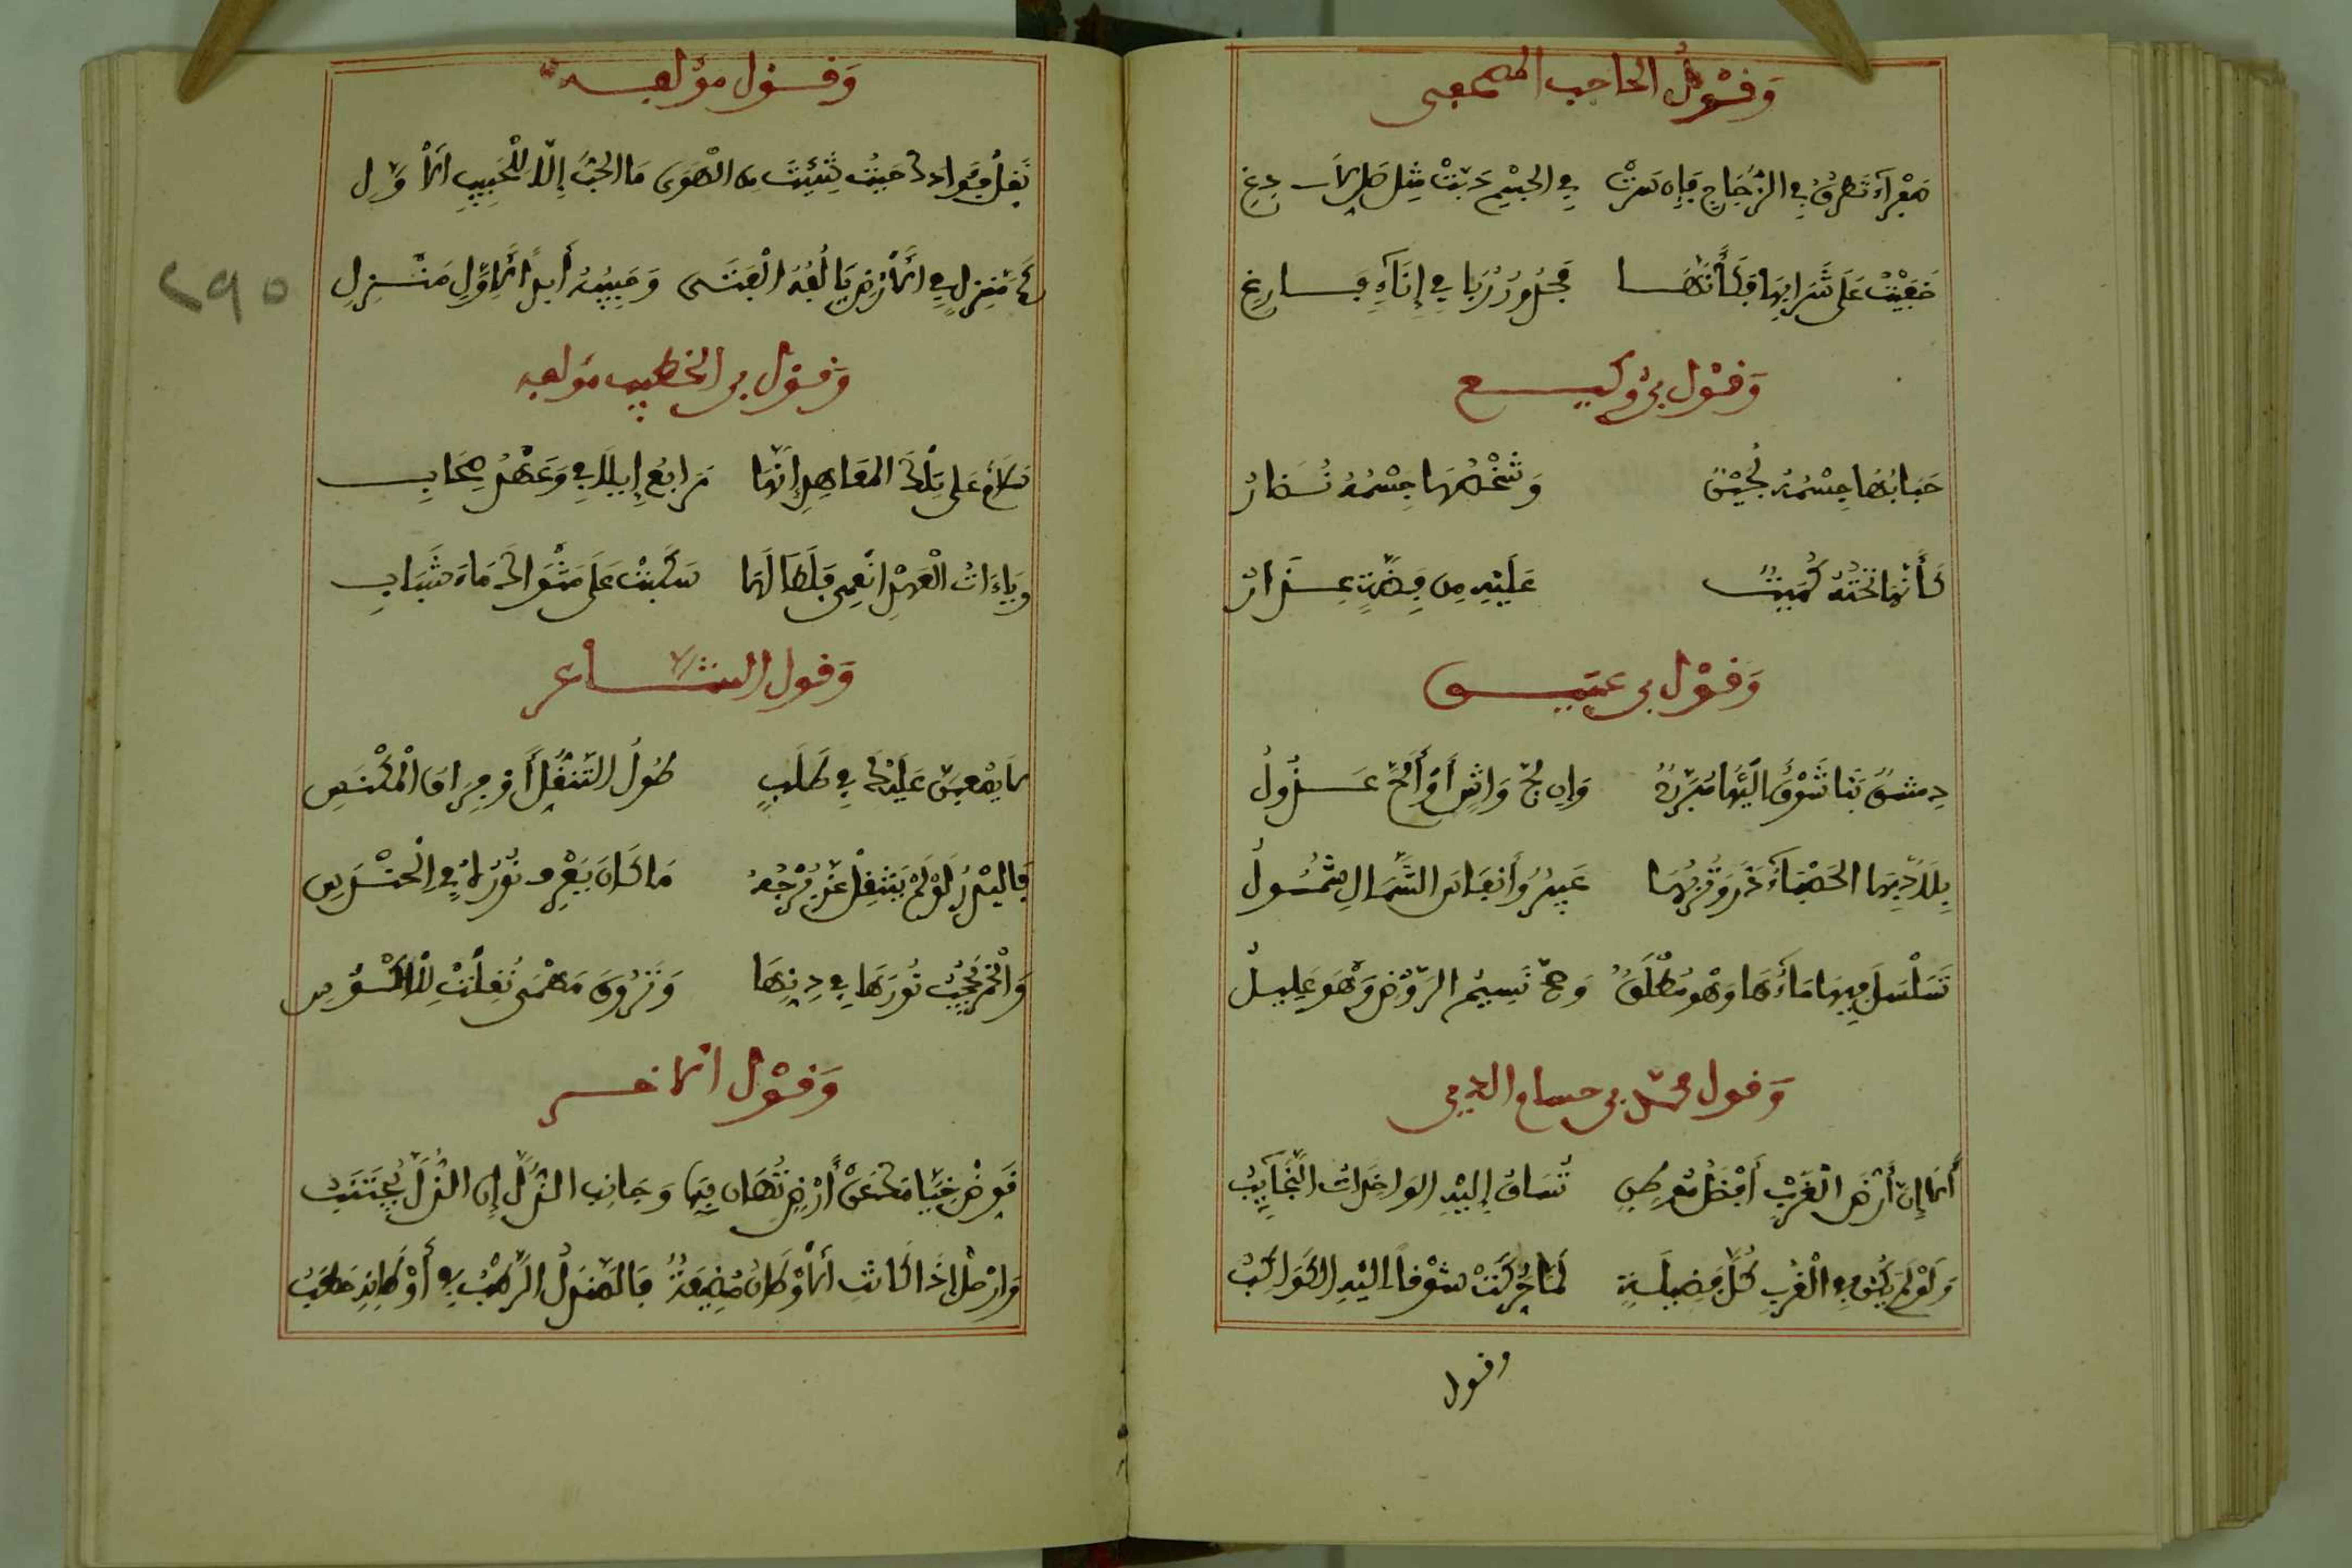 وَقَوْلُ الحاجب المصحفى
صَفْرَآءُ تَطرقُ فِي الزُّجَاجِ فَإِن سَرَتْ فِي الجِسْمِ دَبَّتْ مِثلَ صِلٍّ لَادِغِ
خَفِيَتْ عَلَى شَرَابِهَا فَكَأَنَّهَا يَجِدُونَ رِيًّا فِي إِنَآءٍ فَارِغِ
وَقَوْل بن وكيع
حَبَابُهَا جِسْمُهُ لُجَيْنٌ وَشَخْصُهَا جِسْمُهُ نُضَارُ
كَأَنَّمَا تَحْتَهُ كُمَيْتٌ عَلَيْهِ مِن فِضَّةٍ عِذَارُ
وَقَوْل بن عنيـن
دِمشق بنا شَوْقٌ إِلَيْهَا مُبَرِّحٌ وَإِن لَجَّ وَاشٍ أَوْ أَلَحَّ عَذُولُ
بِلَادٌ بِهَا الحَصْبَآءُ دُرٌّ وَتُرْبُهَا عَبِيرٌ وَأَنفَاس الشَّمَالِ شَمُولُ
تَسَلْسَلَ فِيهَا مَاءُهَا وَهْو مُطْلَقٌ وَصَحَّ نَسِيمُ الرَّوْضِ وَهْوَ عَلِيلُ
وَقول محمد بن حسام الدين
أَلَا إِنَّ أَرْضَ الغَرْبِ أَفْضَلُ مَوْطِنٍ تُسَاقُ إِلَيْهِ الوَاخِدَاتُ النَّجَآيِبُ
وَلَوْ لَمْ يَكُنْ فِي الْغَرْبِ كُلُّ فَضِيلَةٍ لَمَا حُرِّكَتْ شَوْقاً إِلَيْهِ الكَوَاكِبُ
وقول
وَقَوْل مؤلفه
نَقِّلْ فُؤَادَكَ حَيْثُ شِئْتَ مِنَ الْهَوَى مَا الحُبُّ إِلَّا لِلْحَبِيبِ الْأَوَّلِ
كَمْ مَنْزِلٍ فِي الْأَرْضِ يَأْلَفُهُ الْفَتَى وَحَبِيبُهُ أَبداً لِأَوَّلِ مَنْزِلِ
وَقَوْل بن الخطيب مؤلفه
سَلَامٌ عَلَى تِلْكَ المَعَاهِدِ إِنَّهَا مَرَابِعُ إِيلَافِي وَعَهْدُ صِحَابِ
وَيَاءَاسَةَ الْعَهْدِ انْعِمِي فَلَطَالَمَا سَكَبْتُ عَلَى مَثْوَاكَ مَاءَ شَبَابِ
وَقول الشاعر
لَا يَصْعبَنَّ عَلَيْكَ فِي طَلَبٍ طُولُ التَّنَقُّلِ أَوْ فِرَاقُ الْمَكْنَسِ
فَالبَدْرُ لَوْ لَمْ يَنتَقِلْ عَنْ بُرْجِهِ مَا كَانَ يُعْرِفُ نُورُهُ فِي الحِنْدَسِ
وَالْخَمْرُ يُحْجَبُ نُورُهَا فِي دِنِّهَا وَتَرُوقُ مَهْمَى نُقِلَتْ لِلْأَكْؤُسِ
وَقَوْل الآخـر
قَوِّضْ خِيَامَكَ عَنْ أَرْضٍ تُهَانُ فِيهَا وَجَانِبِ الذُّلَّ إِن الذُّلَّ يُجْتَنَبُ
وَارْحَلْ إِذَا كَانَتِ الْأَوْطَانُ مُضِيعَةً فَالمَنْدَلُ الرَّطْبُ فِي أَوْطَانِهِ حَطَبُ
٢٩٥